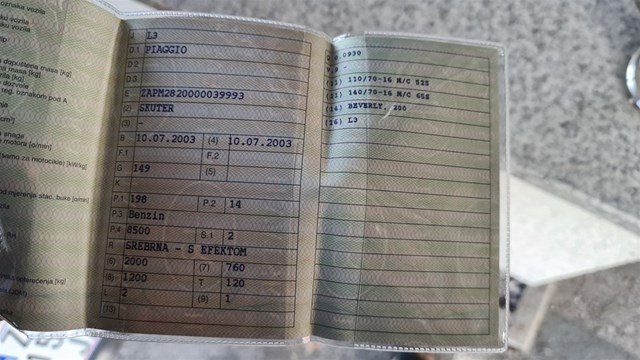 oznaka vozila
vozila
dopuštena masa [kg]
masa [kg]
dozvole
reg. oznakom pod A
snage
motora [o/min]
samo za motocikle) [kW/kg]
mjerenja stac. buke [o/min]
opterećenja [kg]
J L3
D.1 PIAGGIO
D.2
D.3
E ZAPM2820000039993
(2) SKUTER
(3) -
B 10.07.2003 (4) 10.07.2003
F.1 F.2
G 149 (5)
K
P.1 198 P.2 14
P.3 Benzin
P.4 8500 S.1 2
R SREBRNA - S EFEKTOM
(6) 2000 (7) 760
(8) 1200 T 120
L 2 (9) 1
(13)
0930
(11) 110/70-16 M/C 52S
140/70-16 M/C 65S
(14) BEVERLY, 200
(16) L3